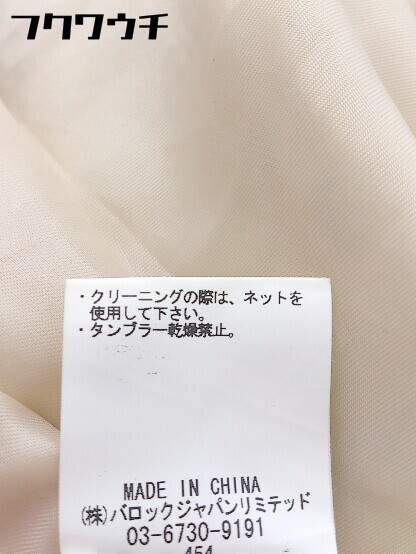 フクワウチ
・クリーニングの際は、ネットを
使用して下さい。
・タンブラー乾燥禁止。
MADE IN CHINA
(株)バロックジャパンリミテッド
03-6730-9191
454